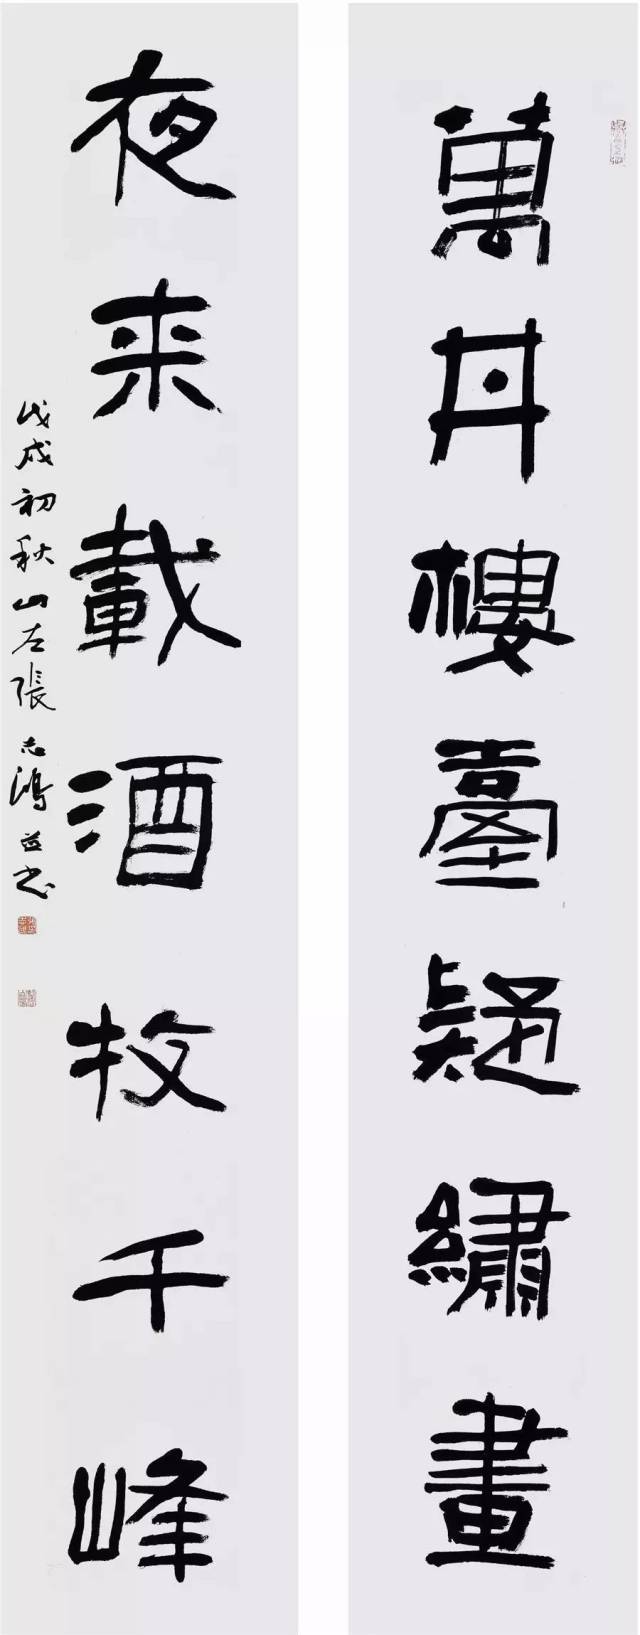 萬丹樓臺疑繡畫
夜来載酒牧千峰
戊戌初秋山左張志鴻並书